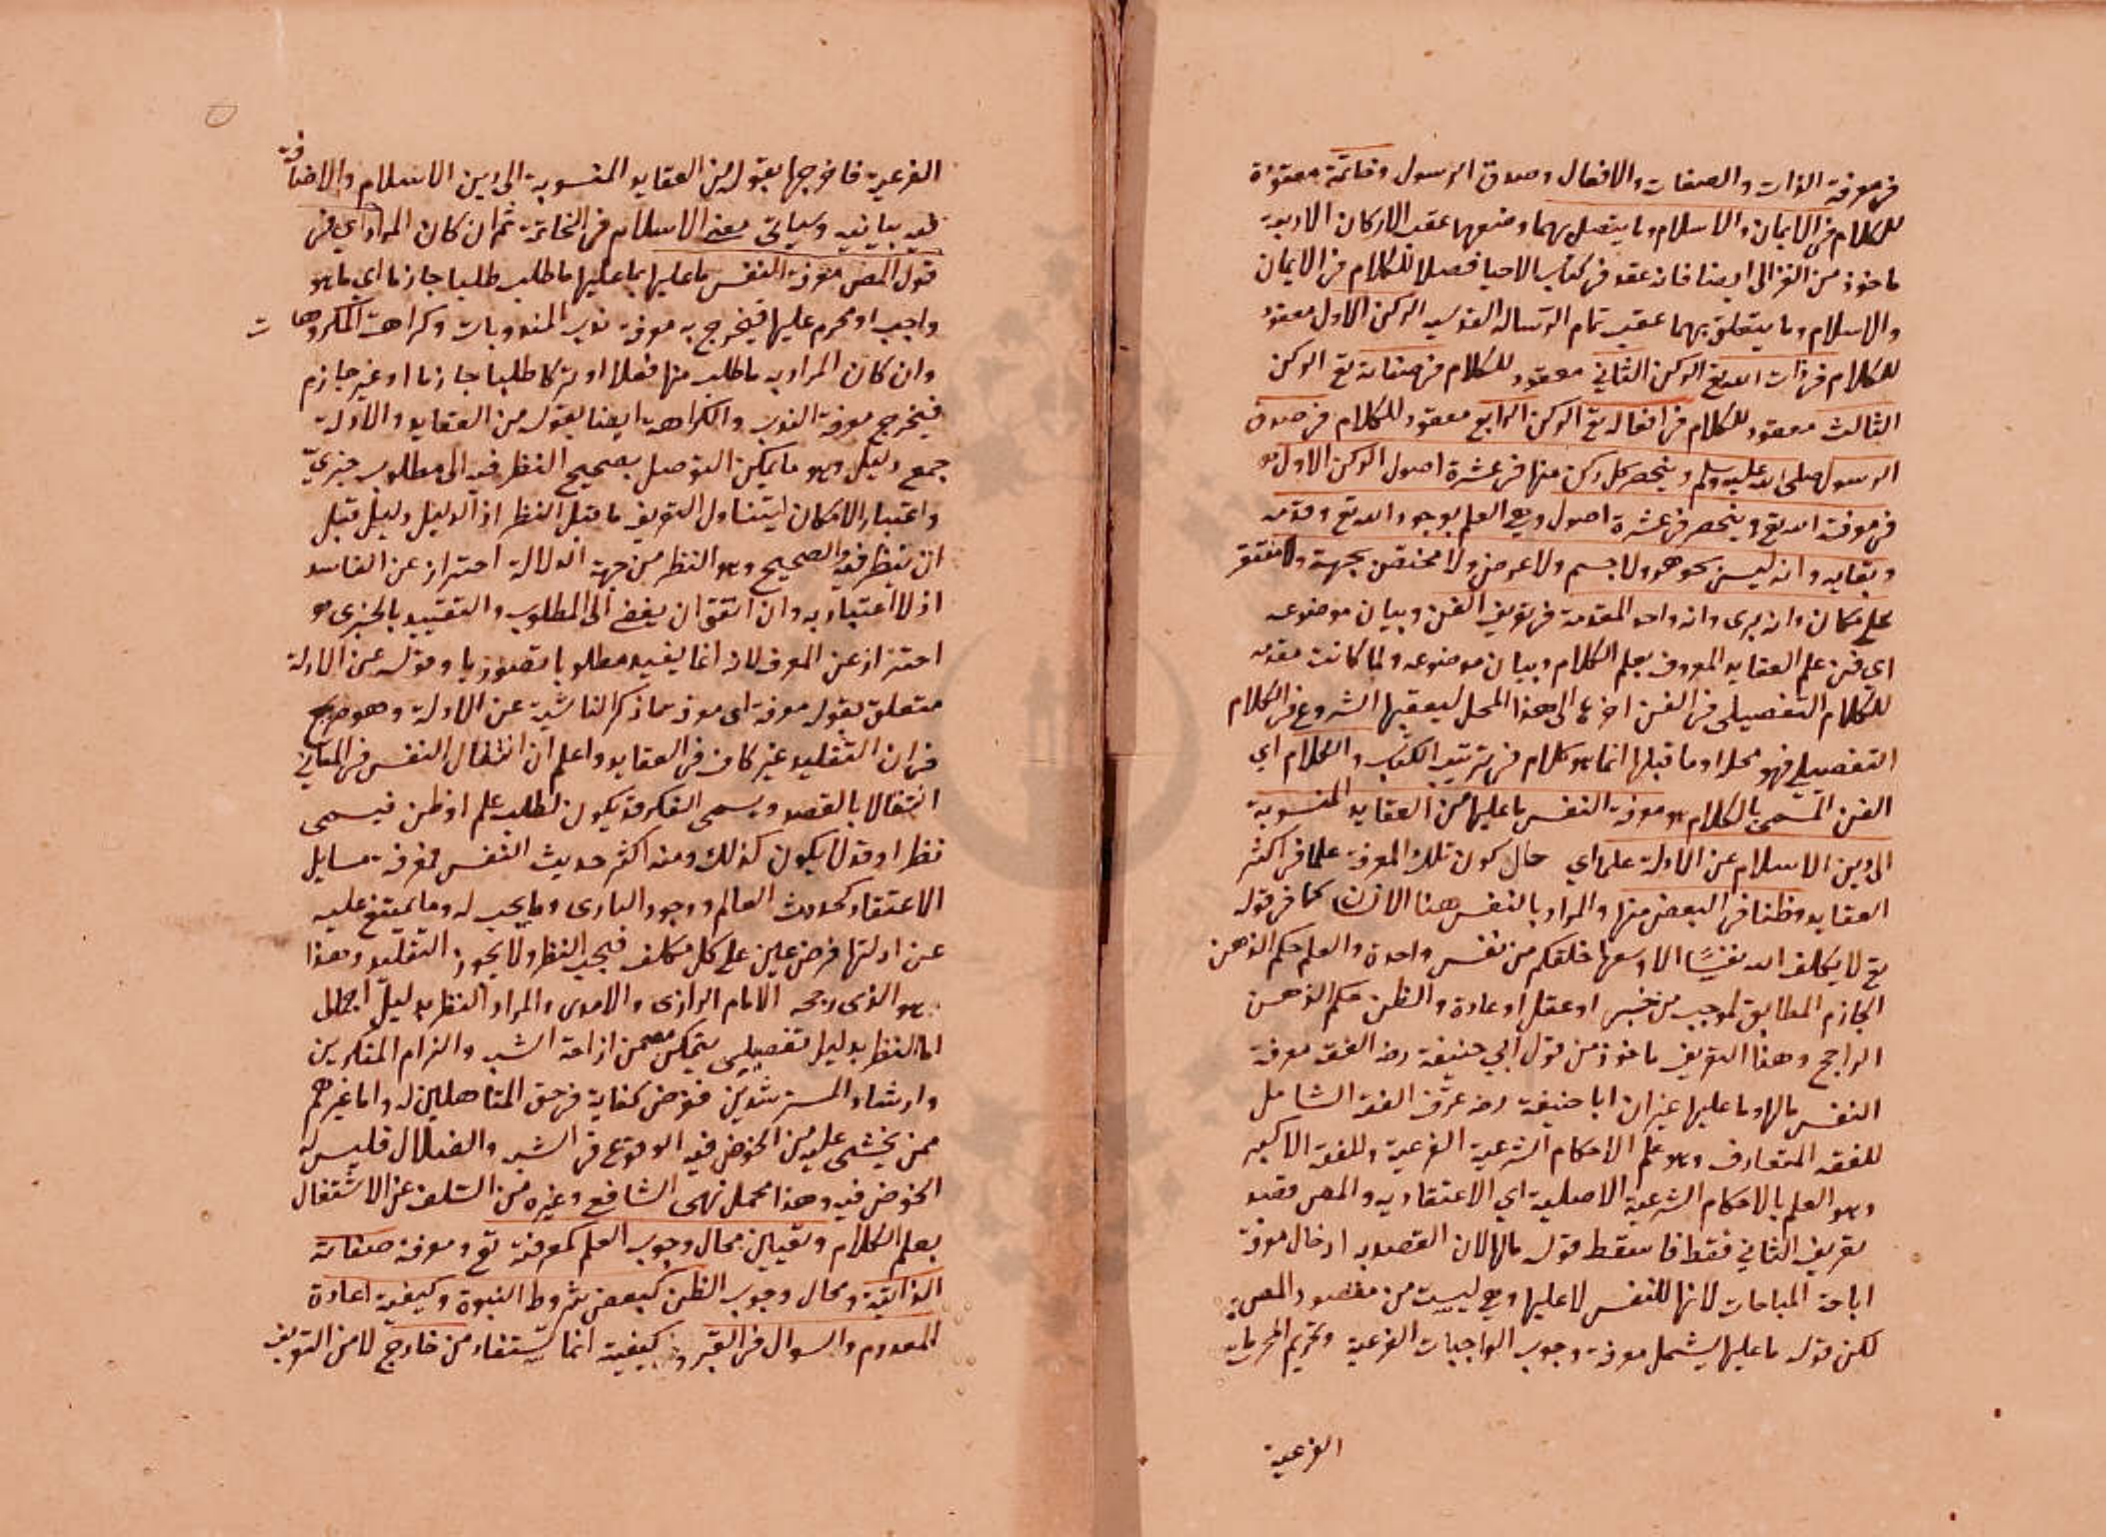 في معرفة الذات والصفات والافعال وصدق الرسول وخاتمة معقودة
للكلام في الايمان والاسلام وما يتصل بهما وضعهما عقب الاركان الاربعة
ماخوذ من الغزالي ايضا فانه عقد في كتاب الاحيا فصلا للكلام في الايمان
والاسلام وما يتعلق بهما عقب تمام الرسالة القدسيه الركن الاول معقود
للكلام في ذات الله تع الركن الثاني معقود للكلام في صفاته تع الركن
الثالث معقود للكلام في افعاله تع الركن الرابع معقود للكلام في صدق
الرسول صلى الله عليه وسلم وينحصر كل ركن منها في عشرة اصول الركن الاول هو
في معرفة الله تع وينحصر في عشرة اصول وهي العلم بوجود الله تع وقدمه
وبقايه وانه ليس بجوهر ولا جسم ولا عرض ولا مختص بجهة ولا مستقر
على مكان وانه يرى وانه واحد المقدمة في تعريف الفن وبيان موضوعه
اي فن علم العقايد المعروف بعلم الكلام وبيان موضوعه ولما كانت مقدمه
للكلام التفصيلي في الفن اخرها الى هذا المحل ليعقبها الشروع في الكلام
التفصيلي فهو محلها وما قبلها انما هو كلام في ترتيب الكتاب والكلام اي
الفن المسمى بالكلام هو معرفة النفس ما عليها من العقايد المنسوبة
الى دين الاسلام عن الادلة علما اي حال كون تلك المعرفة علما في اكثر
العقايد وظنا في البعض منها والمراد بالنفس هنا الانسان كما في قوله
تع لا يكلف الله نفسًا الا وسعها خلقكم من نفس واحدة والعلم حكم الذهن
الجازم المطابق لموجب من حس او عقل او عادة والظن حكم الذهن
الراجح وهذا التعريف ماخوذ من قول ابي حنيفة رضه الفقه معرفة
النفس مالها وما عليها غير ان ابا حنيفة رضه عرّف الفقه الشامل
للفقه المتعارف وهو علم الاحكام الشرعية الفرعية وللفقه الاكبر
وهو العلم بالاحكام الشرعية الاصلية اي الاعتقاديه والمص قصد
تعريف الثاني فقط فاسقط قوله مالها لان القصد به ادخال معرفة
اباحة المباحات لانها للنفس لا عليها وهي ليست من مقصود المص
لكن قوله ما عليها يشمل معرفة وجوب الواجبات الفرعية وتحريم المحرمات
الفرعية
الفرعية فاخرجها بقوله من العقايد المنسوبة الى دين الاسلام والاضافة
فيه بيانيه وسياتي معنى الاسلام في الخاتمة ثم ان كان المراد اي في
قول المص معرفة النفس ما عليها بما عليها ما طلب طلبا جازما اي ما هو
واجب او محرم عليها فيخرج به معرفة ندب المندوبات وكراهة المكروهات
وان كان المراد به ما طلب منها فعلا او تركا طلبا جازما او غير جازم
فيخرج معرفة الندب والكراهة ايضا بقوله من العقايد والادلة
جمع دليل وهو ما يمكن التوصل بصحيح النظر فيه الى مطلوب خبريّ
واعتبار الامكان ليتناول التعريف ما قبل النظر اذ الدليل دليل قبل
ان ينظر فيه والصحيح وهو النظر من جهة الدلالة احتراز عن الفاسد
اذ لا اعتبار به وان اتفق ان يفضي الى المطلوب والتقييد بالخبري هو
احتراز عن المعرف لانه انما يفيد مطلوبا تصوريا وقوله عن الادلة
متعلق بقوله معرفة اى معرفة ما ذكر الناشية عن الادلة وهو صريح
في ان التقليد غير كاف في العقايد واعلم ان انتقال النفس في المعاني
انتقالا بالقصد ويسمى الفكر قد يكون لطلب علم او ظن فيسمى
نظرا وقد لا يكون كذلك ومنه اكثر حديث النفس فمعرفة مسايل
الاعتقاد كحدوث العالم ووجود البارى وما يجب له وما يمتنع عليه
عن ادلتها فرض عين على كل مكلف فيجب النظر ولا يجوز التقليد وهذا
هو الذى رجحه الامام الرازى والامدى والمراد النظر بدليل اجمالى
اما النظر بدليل تفصيلي يتمكن معه من ازاحة الشبه والزام المنكرين
وارشاد المسترشدين ففرض كفاية في حق المتاهلين له واما غيرهم
ممن يخشى عليه من الخوض فيه الوقوع في الشبه والضلال فليس له
الخوض فيه وهذا محمل نهى الشافعي وغيره من السلف عن الاشتغال
بعلم الكلام وتعيين محال وجوب العلم كمعرفته تع ومعرفة صفاته
الذاتية ومحال وجوب الظن كبعض شروط النبوة وكيفية اعادة
المعدوم والسوال في القبر وكيفيته انما يستفاد من خارج لا من التعريف